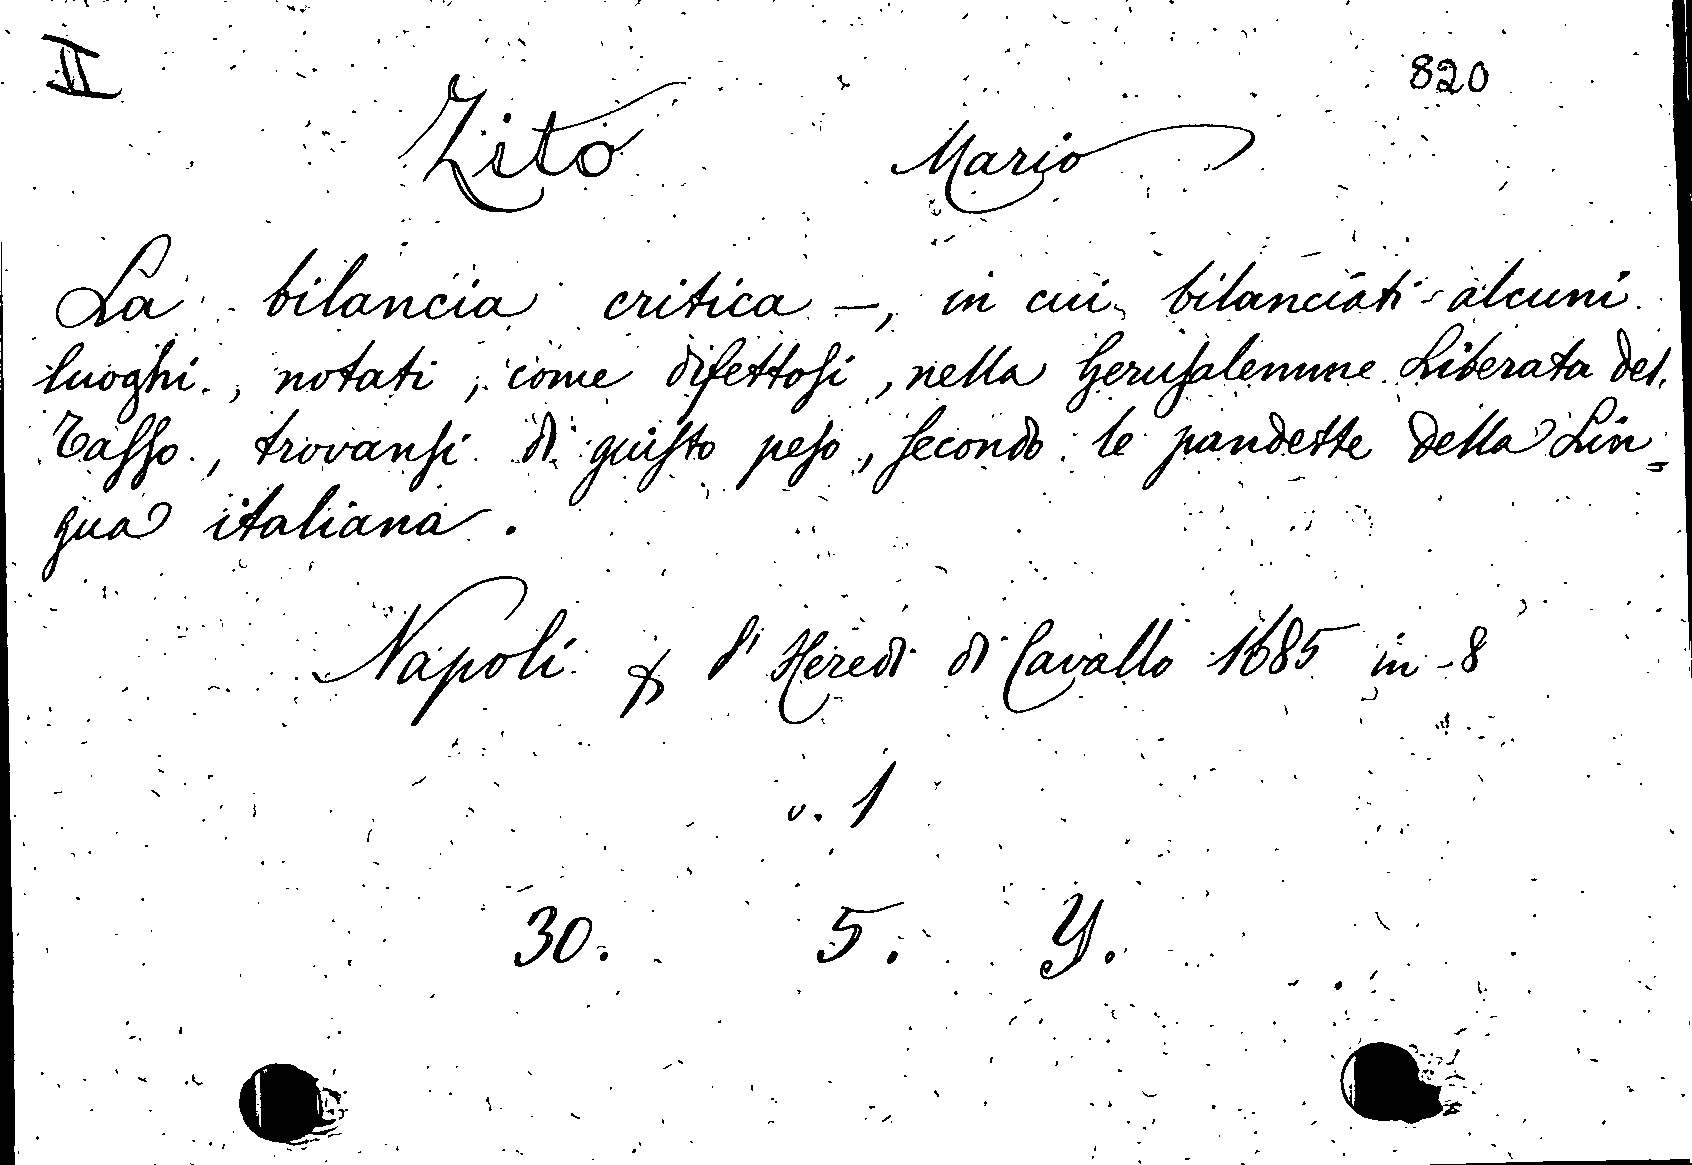 II
820
Zito Mario
La bilancia critica —, in cui, bilanciati alcuni
luoghi, notati, come difettosi, nella Gerusalemme Liberata del
Tasso, trovansi di giusto peso, secondo le pandette della Lin=
gua italiana.
Napoli & l'Heredi di Cavallo 1685 in-8
v. 1
30. 5. Y.